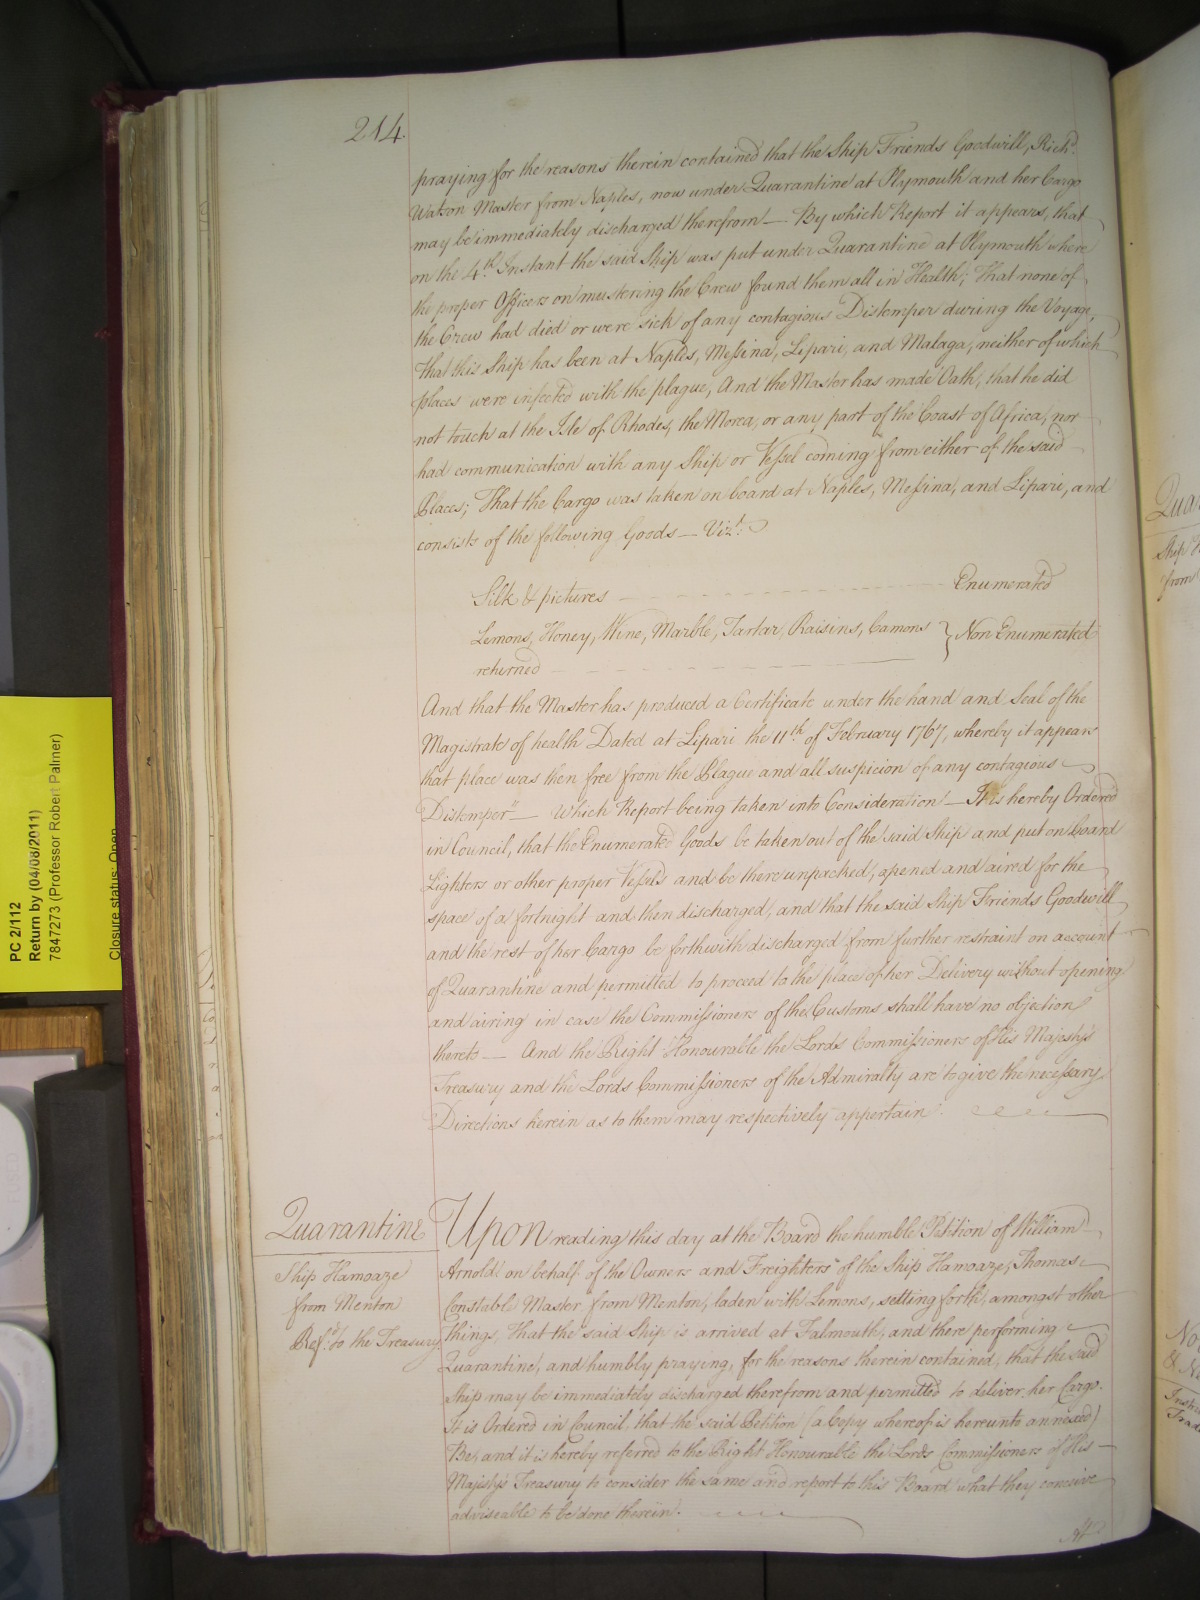 214.
praying for the reasons therein contained that the Ship Friends Goodwill, Richd.
Watson Master from Naples, now under Quarantine at Plymouth and her Cargo
may be immediately discharged therefrom — By which Report it appears, that
on the 4th. Instant the said Ship was put under Quarantine at Plymouth where
the proper Officers on mustering the Crew found them all in Health; That none of
the Crew had died or were sick of any contagious Distemper during the Voyage,
That this Ship has been at Naples, Messina, Lipari, and Malaga, neither of which
places were infected with the plague, And the Master has made Oath, that he did
not touch at the Isle of Rhodes, the Morea, or any part of the Coast of Africa, nor
had communication with any Ship or Vessel coming from either of the said
Places; That the Cargo was taken on board at Naples, Messina, and Lipari, and
consists of the following Goods — Vizt.
Silk & pictures — Enumerated
Lemons, Honey, Wine, Marble, Tartar, Raisins, Camons } Non Enumerated
returned
And that the Master has produced a Certificate under the hand and Seal of the
Magistrate of health Dated at Lipari the 11th. of February 1767, whereby it appears
that place was then free from the Plague and all suspicion of any contagious
Distemper" — Which Report being taken into Consideration — It is hereby Ordered
in Council, that the Enumerated Goods be taken out of the said Ship and put on board
Lighters or other proper Vessels and be there unpacked, opened and aired for the
space of a fortnight and then discharged, and that the said Ship Friends Goodwill
and the rest of her Cargo be forthwith discharged from further restraint on account
of Quarantine and permitted to proceed to the place of her Delivery without opening
and airing in case the Commissioners of the Customs shall have no objection
thereto — And the Right Honourable the Lords Commissioners of His Majesty's
Treasury and the Lords Commissioners of the Admiralty are to give the necessary
Directions herein as to them may respectively appertain.
Quarantine
Ship Hamoaze
from Menton
Ref.d to the Treasury.
Upon reading this day at the Board the humble Petition of William
Arnold on behalf of the Owners and Freighters of the Ship Hamoaze, Thomas
Constable Master from Menton, laden with Lemons, setting forth, amongst other
things, That the said Ship is arrived at Falmouth, and there performing
Quarantine, and humbly praying, for the reasons therein contained, that the said
Ship may be immediately discharged therefrom and permitted to deliver her Cargo.
It is Ordered in Council, that the said Petition (a Copy whereof is hereunto annexed)
Be, and it is hereby referred to the Right Honourable the Lords Commissioners of His
Majesty's Treasury to consider the same and report to this Board what they conceive
adviseable to be done therein.
PC 2/112
Return by (04/08/2011)
7847273 (Professor Robert Palmer)
Closure status: Open
Quar
Ship
from
No
& N
Trade